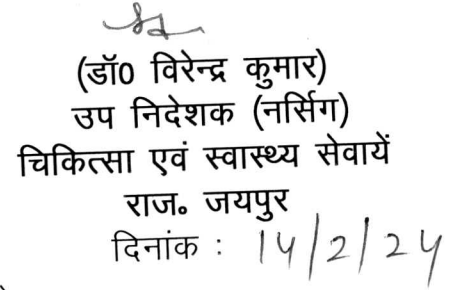 (डॉ0 विरेन्द्र कुमार)
उप निदेशक (नर्सिग)
चिकित्सा एवं स्वास्थ्य सेवायें
राज॰ जयपुर
दिनांक : 14/2/24